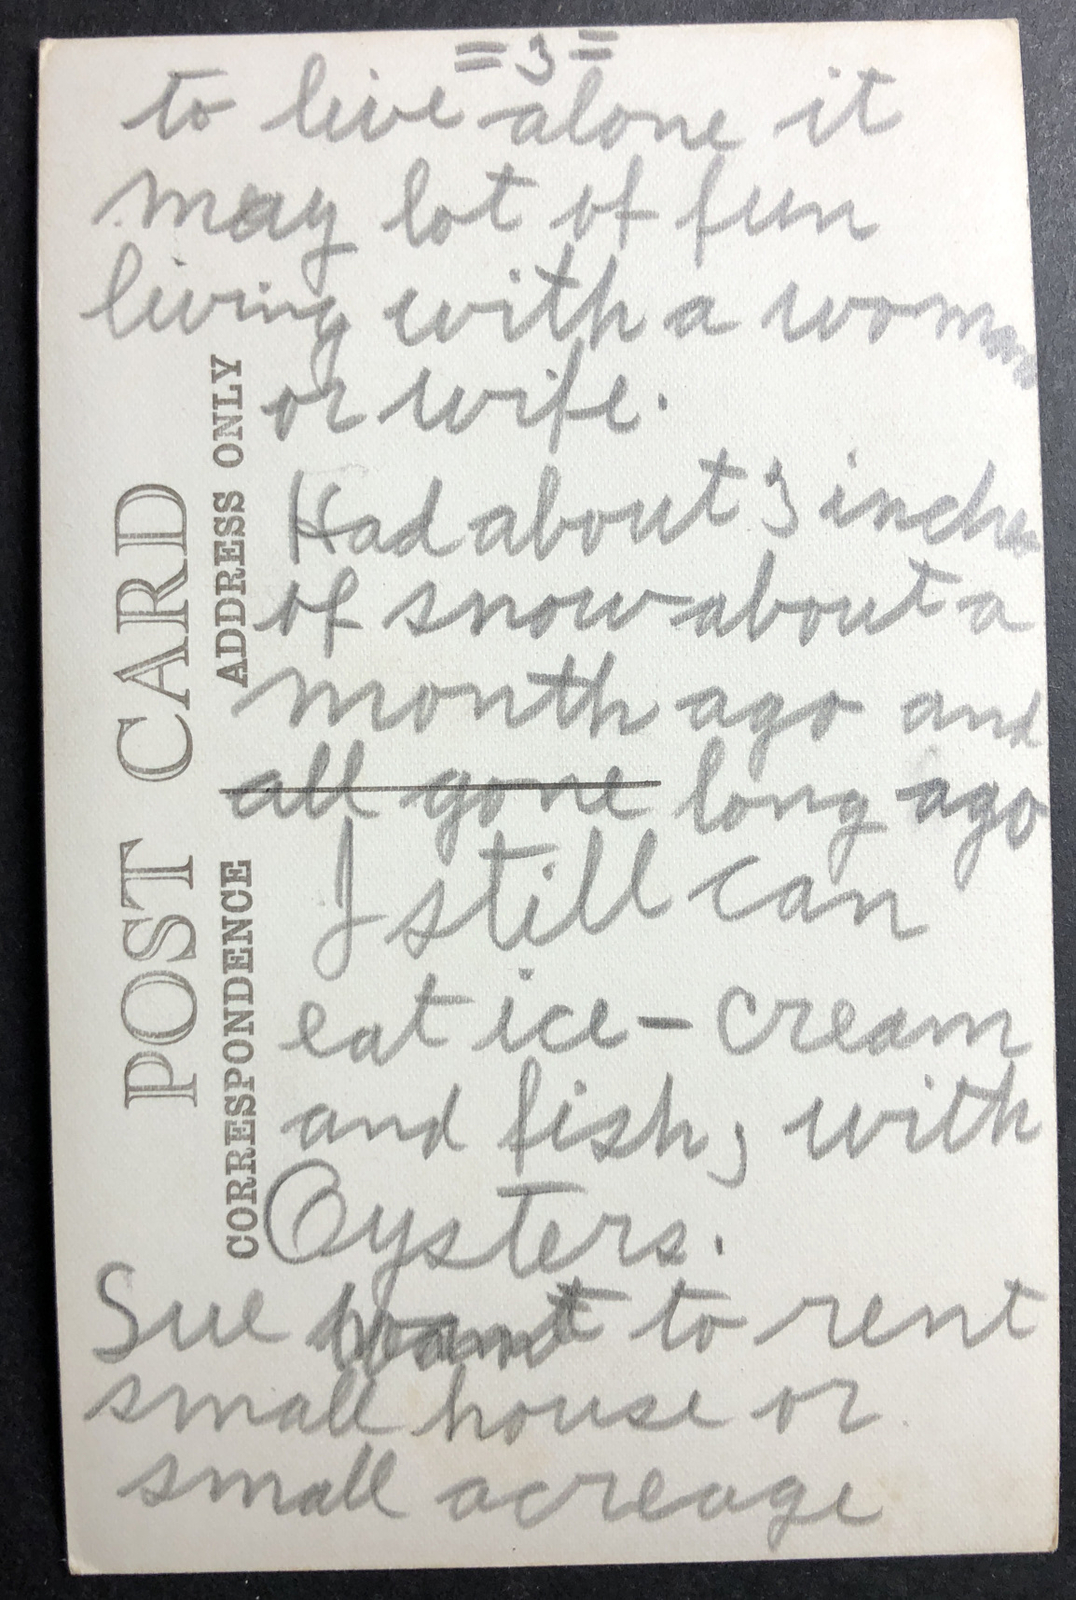 = 3 =
to live alone it
may lot of fun
living with a woman
or wife.
Had about 3 inches
of snow about a
month ago and
all gone long ago
I still can
eat ice - cream
and fish, with
Oysters.
Sue want to rent
small house or
small acreage
POST CARD
ADDRESS ONLY
CORRESPONDENCE